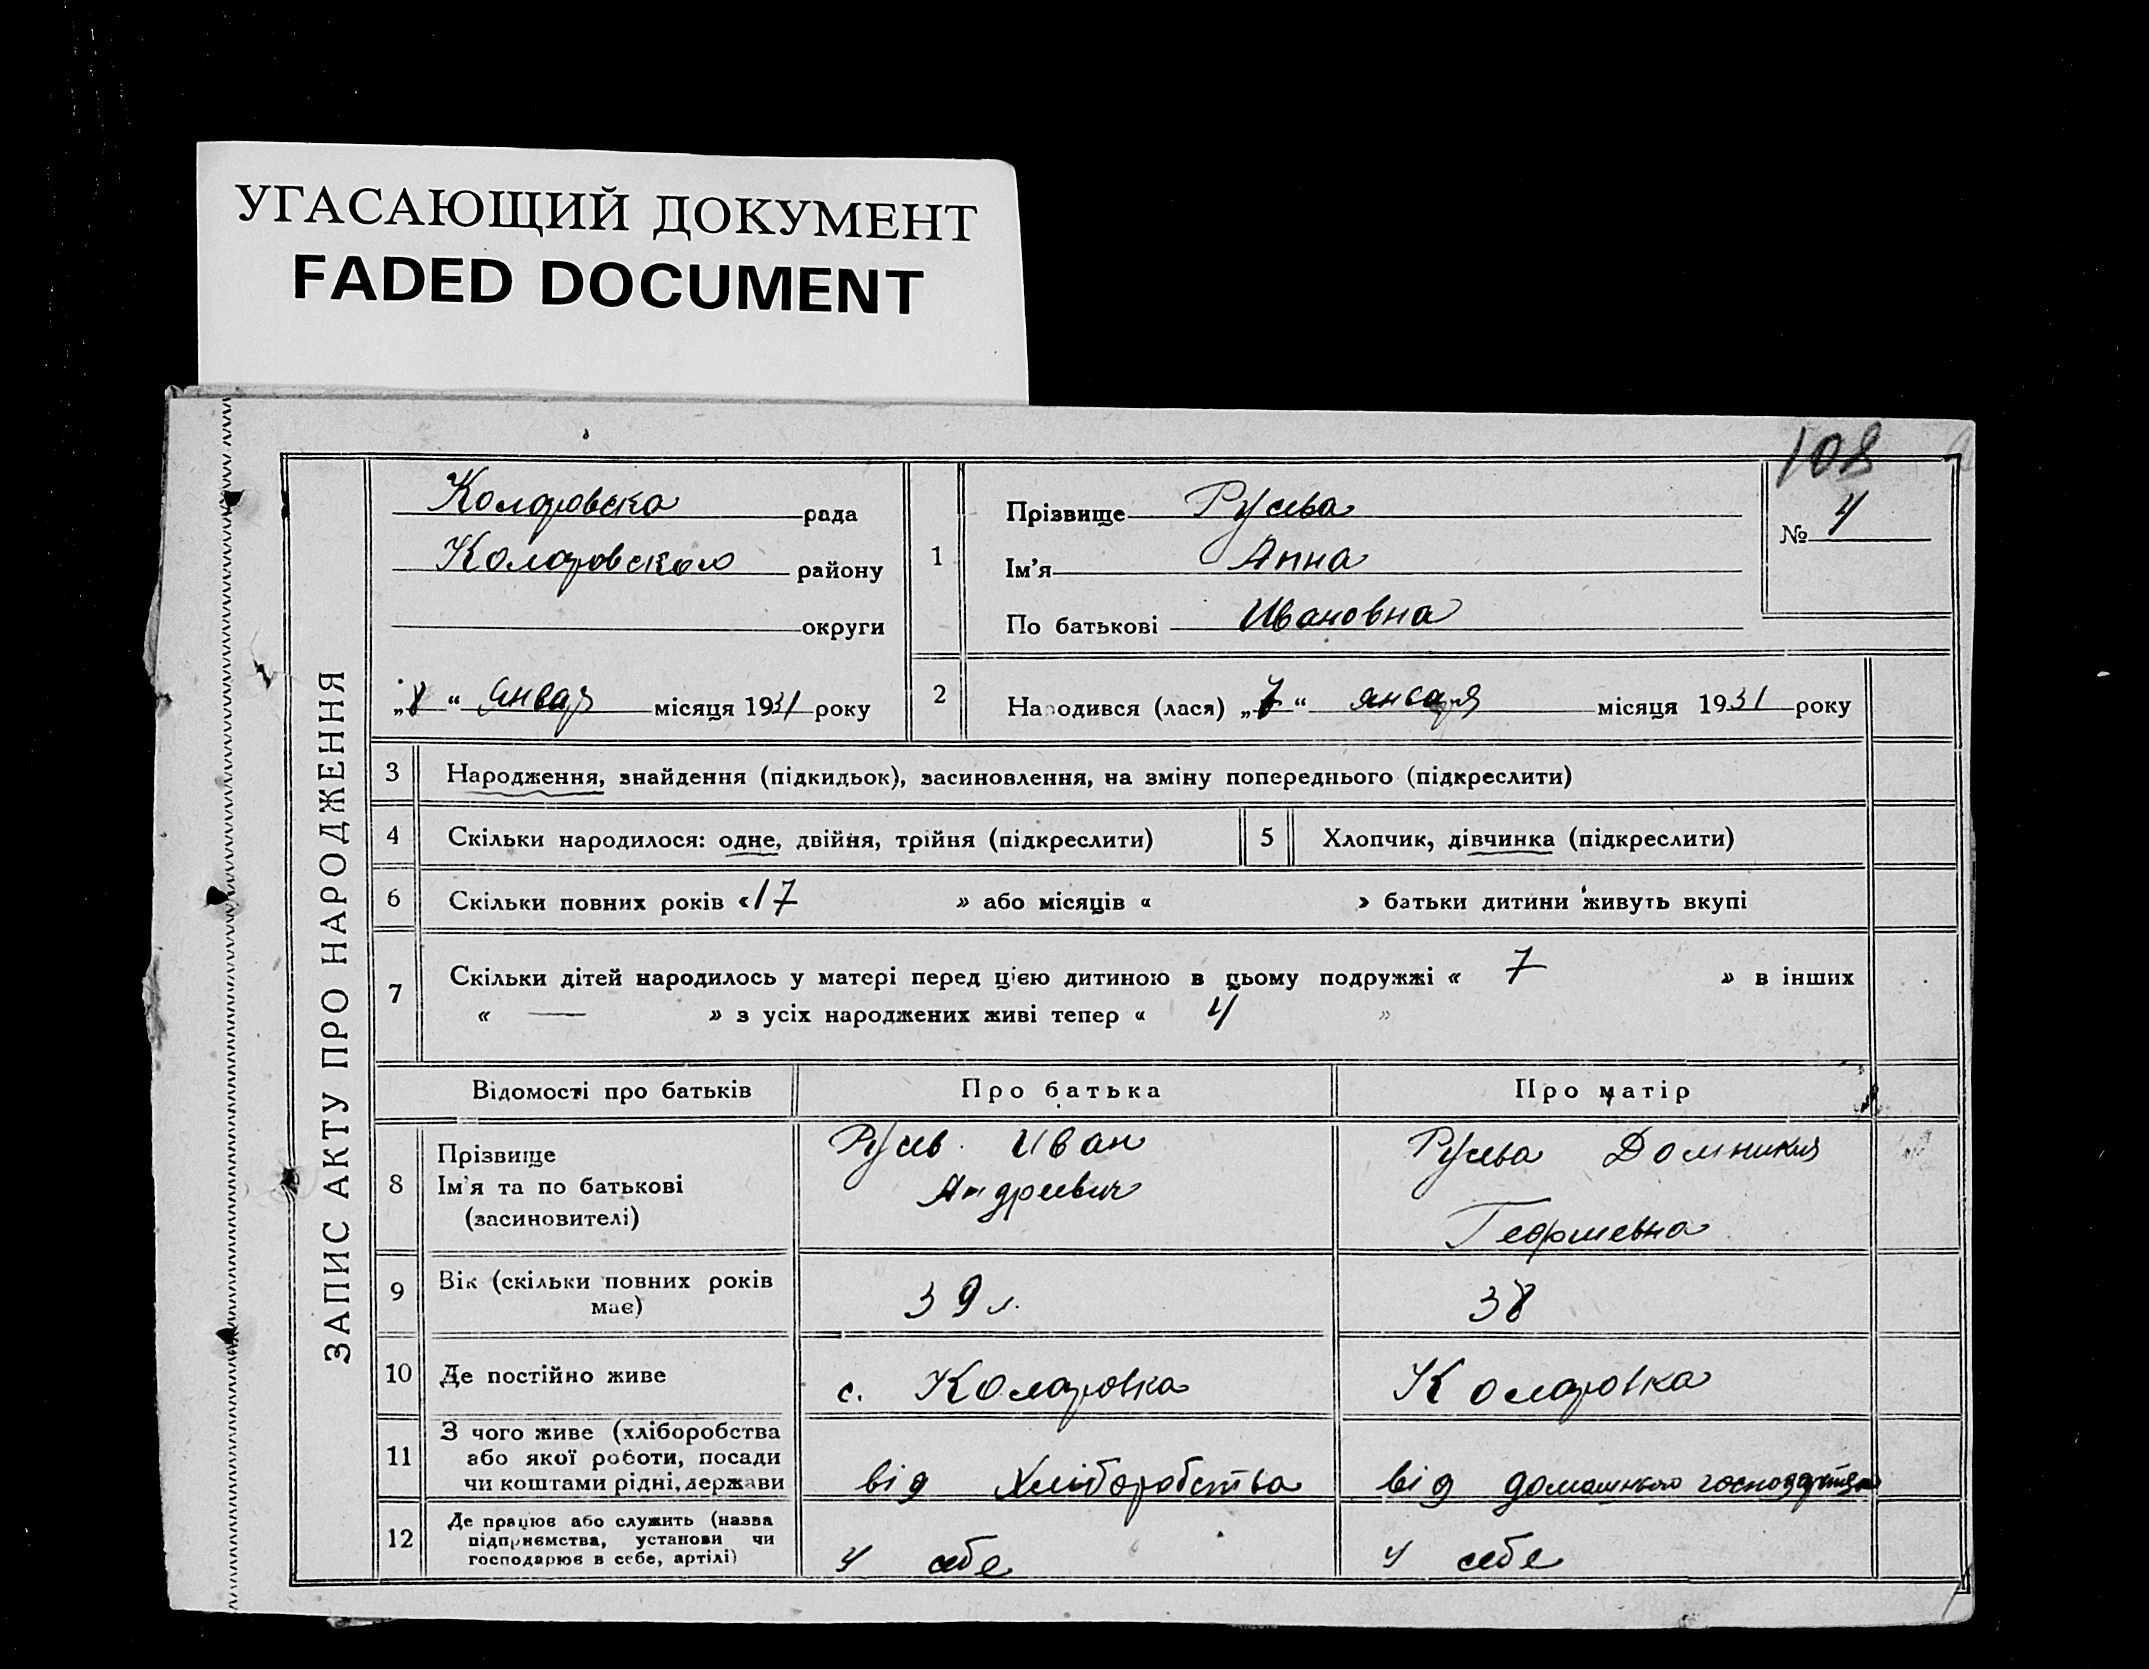 УГАСАЮЩИЙ ДОКУМЕНТ
FADED DOCUMENT
108
ЗАПИС АКТУ ПРО НАРОДЖЕННЯ
Коларовска рада
Коларовского району
округи
„8“ Январ місяця 1931 року
1
Прізвище Русева
Ім'я Анна
По батькові Ивановна
№ 4
2
Народився (лася) „7“ января місяця 1931 року
3 Народження, знайдення (підкидьок), засиновлення, на зміну попереднього (підкреслити)
4 Скільки народилося: одне, двійня, трійня (підкреслити)
5 Хлопчик, дівчинка (підкреслити)
6 Скільки повних років «17 » або місяців « » батьки дитини живуть вкупі
7 Скільки дітей народилось у матері перед цією дитиною в цьому подружжі « 7 » в інших
« — » з усіх народжених живі тепер « 4 »
Відомості про батьків Про батька Про матір
8 Прізвище
Ім'я та по батькові
(засиновителі)
Русев Иван
Андреевич
Русева Домникия
Георгиевна
9 Вік (скільки повних років
має)
39 л.
38
10 Де постійно живе
с. Коларовка
Коларовка
11 З чого живе (хліборобства
або якої роботи, посади
чи коштами рідні, держави
від Хліборобства
від домашнього господарства
12 Де працює або служить (назва
підприємства, установи чи
господарює в себе, артілі)
у себе
у себе